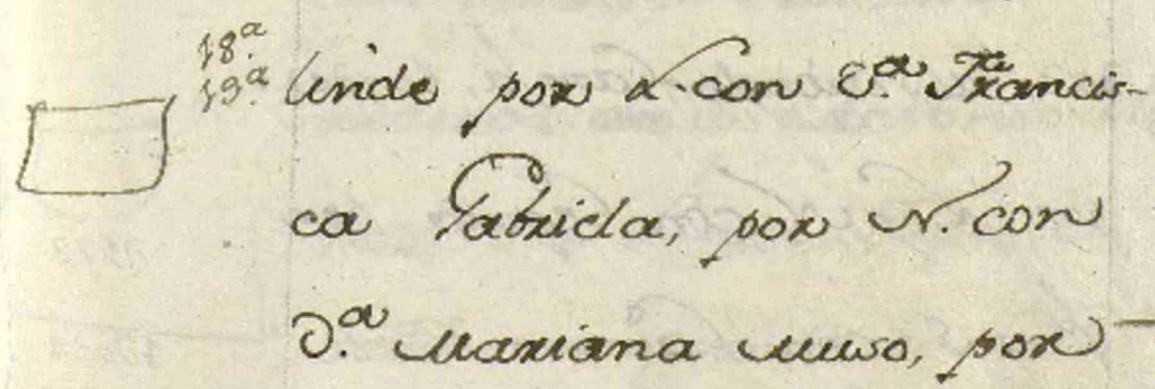 18.ª
19.ª linde por L. con D.ª Francis-
ca Gabriela, por N. con
D.ª Mariana Muso, por